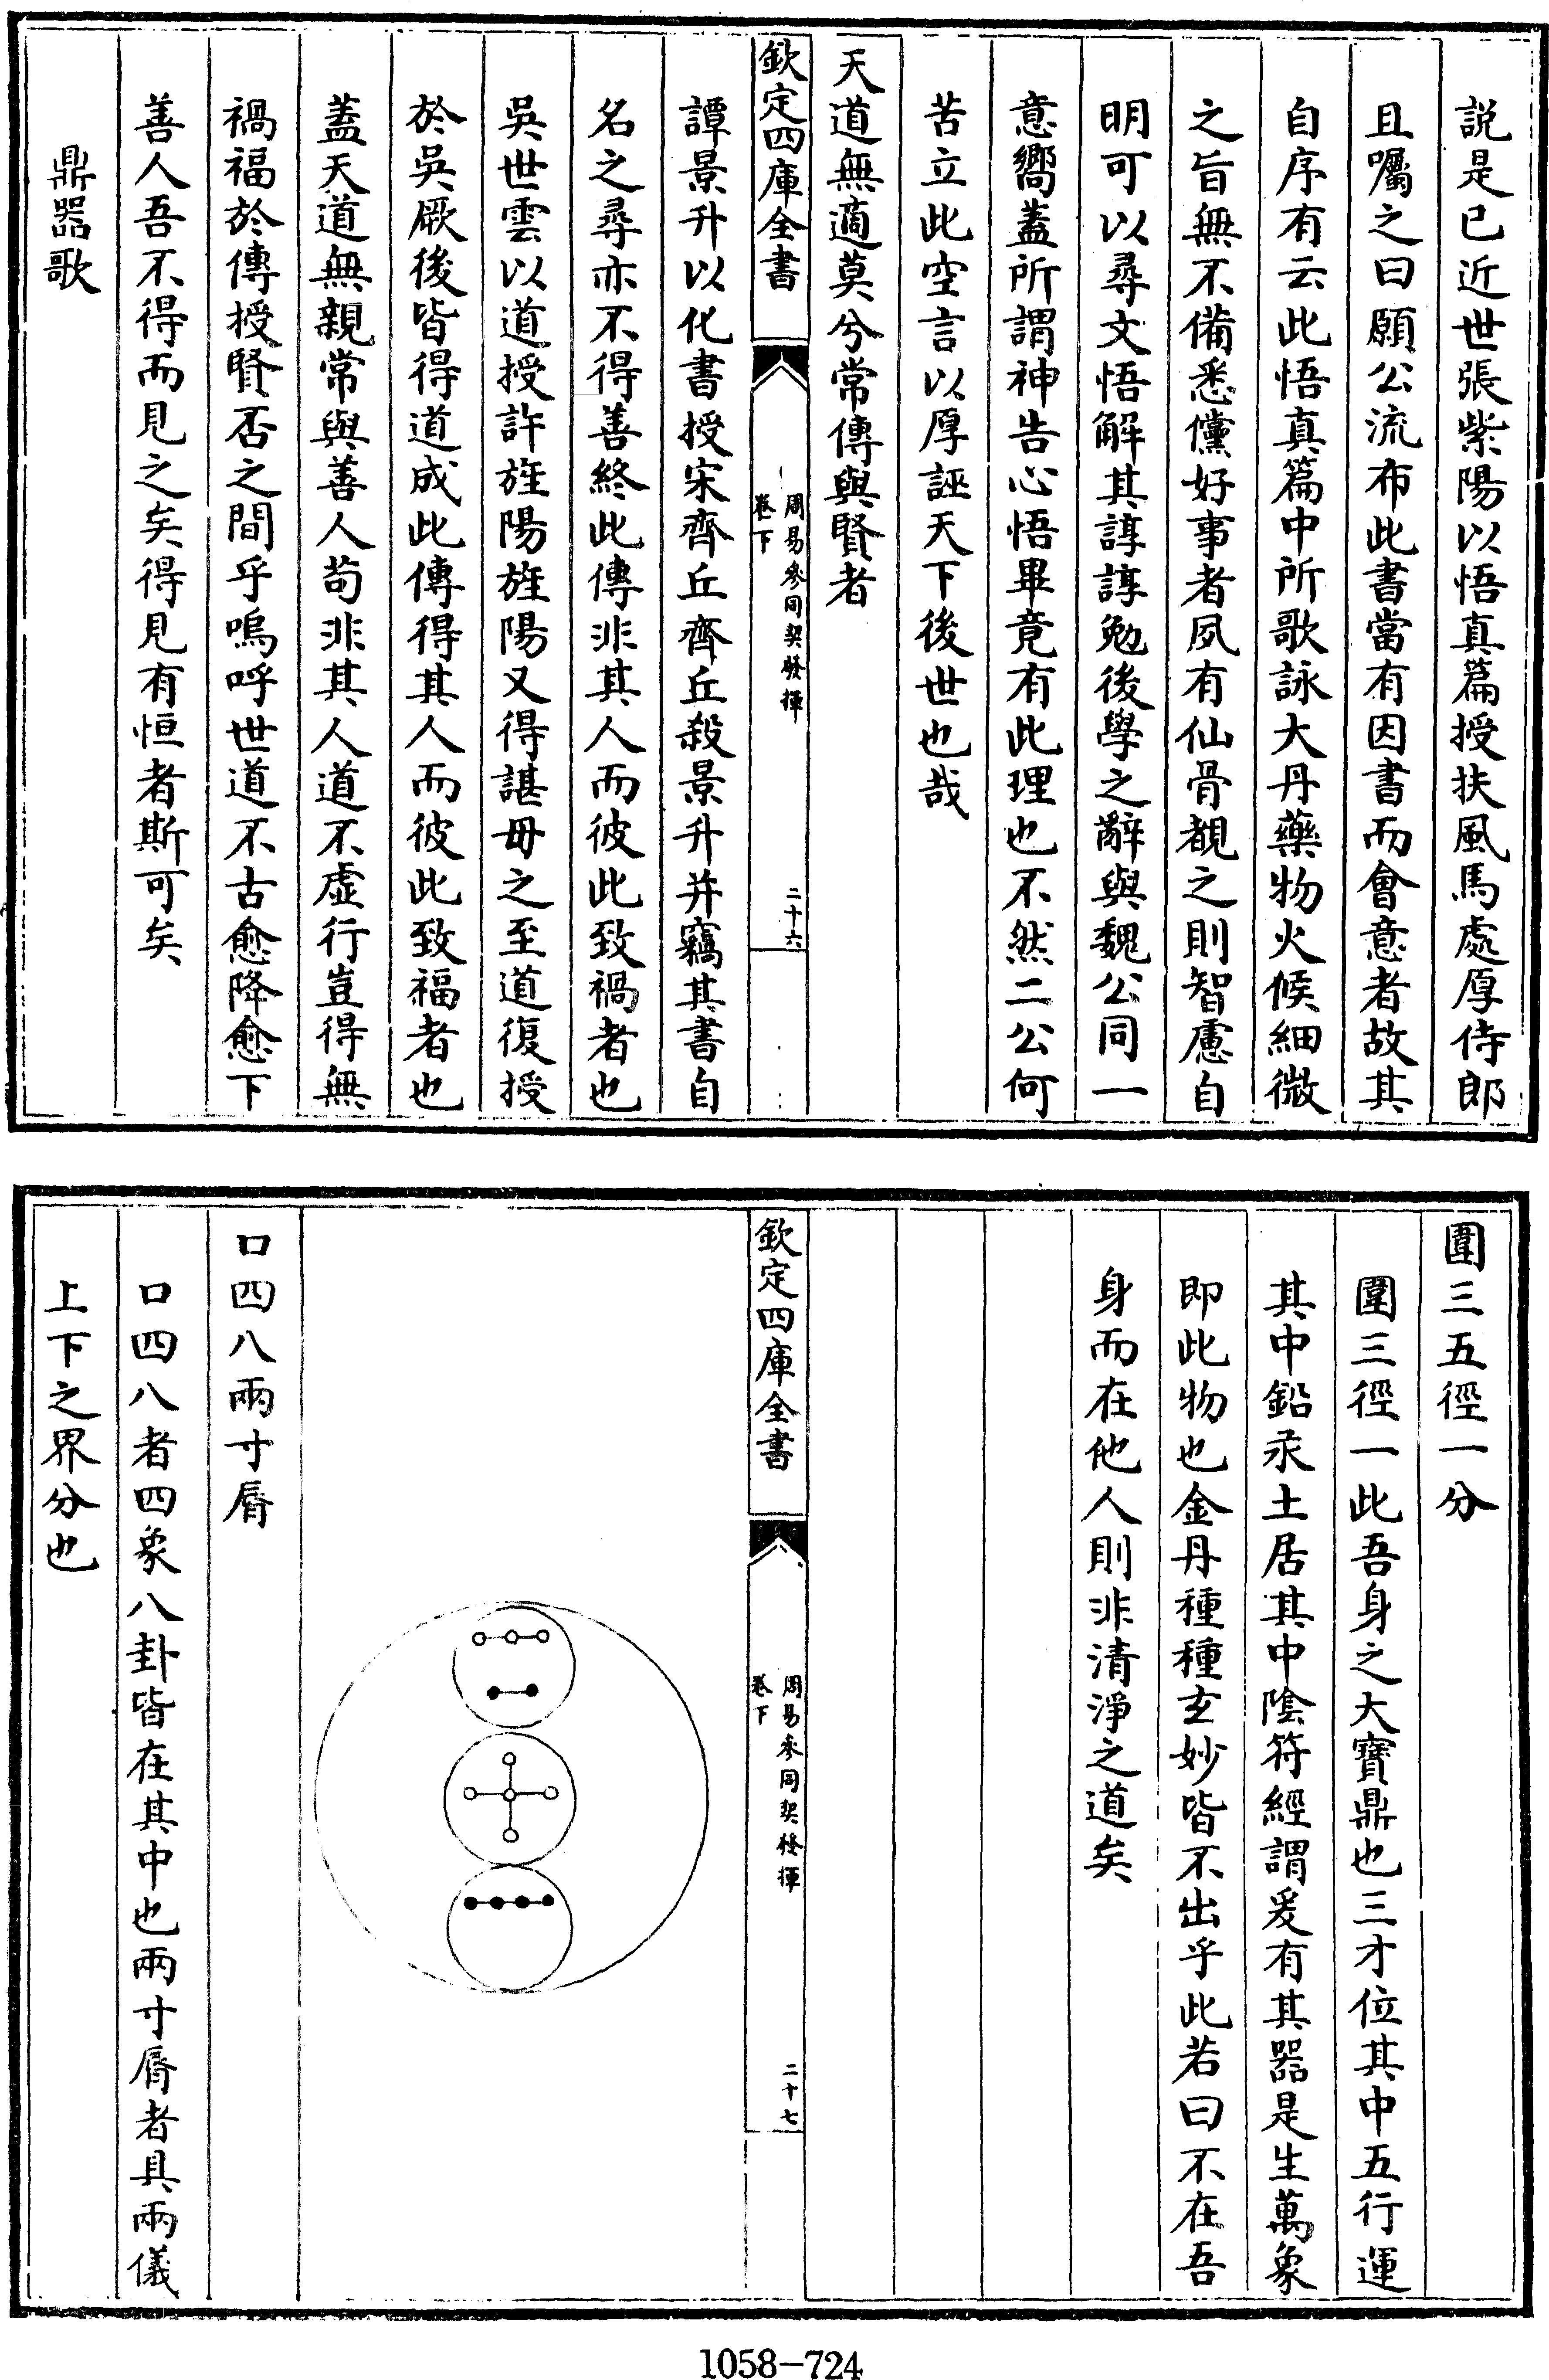 説是已近世張紫陽以悟真篇授扶風馬處厚侍郎
且囑之曰願公流布此書當有因書而會意者故其
自序有云此悟真篇中所歌詠大丹藥物火候細微
之旨無不備悉儻好事者夙有仙骨覩之則智慮自
明可以尋文悟解其諄諄勉後學之辭與魏公同一
意嚮蓋所謂神告心悟畢竟有此理也不然二公何
苦立此空言以厚誣天下後世也哉
天道無適莫兮常傳與賢者
欽定四庫全書
周易參同契發揮
卷下
二十六
譚景升以化書授宋齊丘齊丘殺景升并竊其書自
名之尋亦不得善終此傳非其人而彼此致禍者也
吳世雲以道授許旌陽旌陽又得諶母之至道復授
於吳厥後皆得道成此傳得其人而彼此致福者也
蓋天道無親常與善人苟非其人道不虛行豈得無
禍福於傳授賢否之間乎嗚呼世道不古愈降愈下
善人吾不得而見之矣得見有恒者斯可矣
鼎器歌
圍三五徑一分
圍三徑一此吾身之大寶鼎也三才位其中五行運
其中鉛汞土居其中陰符經謂爰有其器是生萬象
即此物也金丹種種玄妙皆不出乎此若曰不在吾
身而在他人則非清淨之道矣
欽定四庫全書
周易參同契發揮
卷下
二十七
口四八兩寸脣
口四八者四象八卦皆在其中也兩寸脣者具兩儀
上下之界分也
1058-724